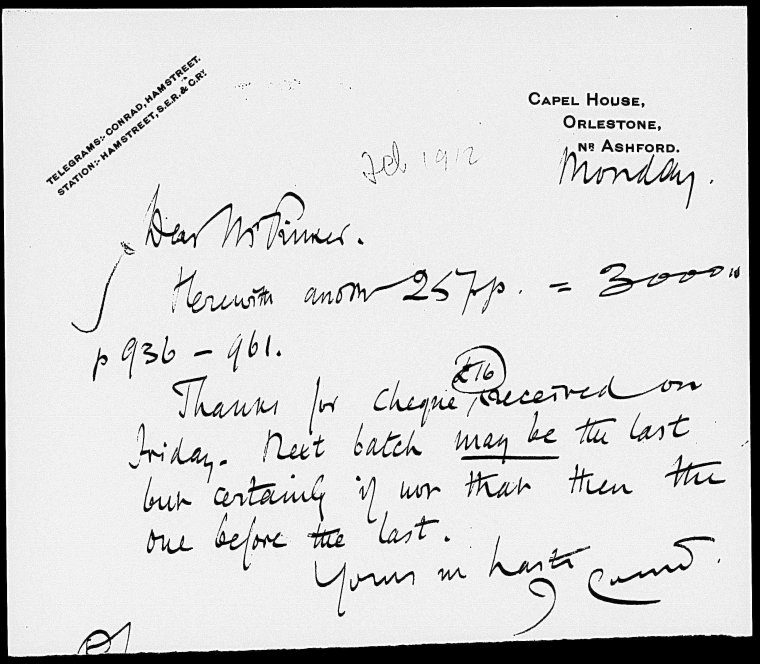 TELEGRAMS:- CONRAD, HAMSTREET.
STATION:- HAMSTREET, S.E.R. & C.RY
CAPEL HOUSE,
ORLESTONE,
NR ASHFORD.
Feb 1912
Monday.
Dear Mr Pinker.
Herewith another 25 pp. = 3000 w
p 936 – 961.
£16
Thanks for cheque, received on
Friday. Next batch may be the last
but certainly if not that then the
one before the last.
Yours in haste
J Conrad.